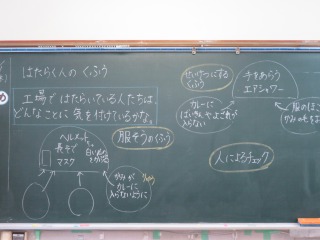 はたらく人のくふう
工場ではたらいている人たちは、
どんなことに気を付けているかな。
ヘルメット
長そで
マスク
白い
服そうのくふう
かみが
カレーに
入らないように
せいけつにする
くふう
カレーに
ばいきんやよごれが
入らない
手をあらう
エアシャワー
服のほこ
かみの毛を
人によるチェック